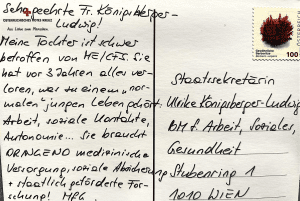 Sehr geehrte Fr. Königsberger-
Ludwig!
ÖSTERREICHISCHES ROTES KREUZ
Aus Liebe zum Menschen.
Meine Tochter ist schwer
betroffen von ME/CFS. Sie
hat vor 3 Jahren alles ver-
loren, was zu einem „nor-
malen“ jungen Leben gehört.
Arbeit, soziale Kontakte,
Autonomie... Sie braucht
DRINGEND medizinische
Versorgung, soziale Absicherung
+ staatlich geförderte For-
schung! MFG
100
Staatssekretärin
Ulrike Königsberger-Ludwig
BM f. Arbeit, Soziales,
Gesundheit
Stubenring 1
1010 WIEN